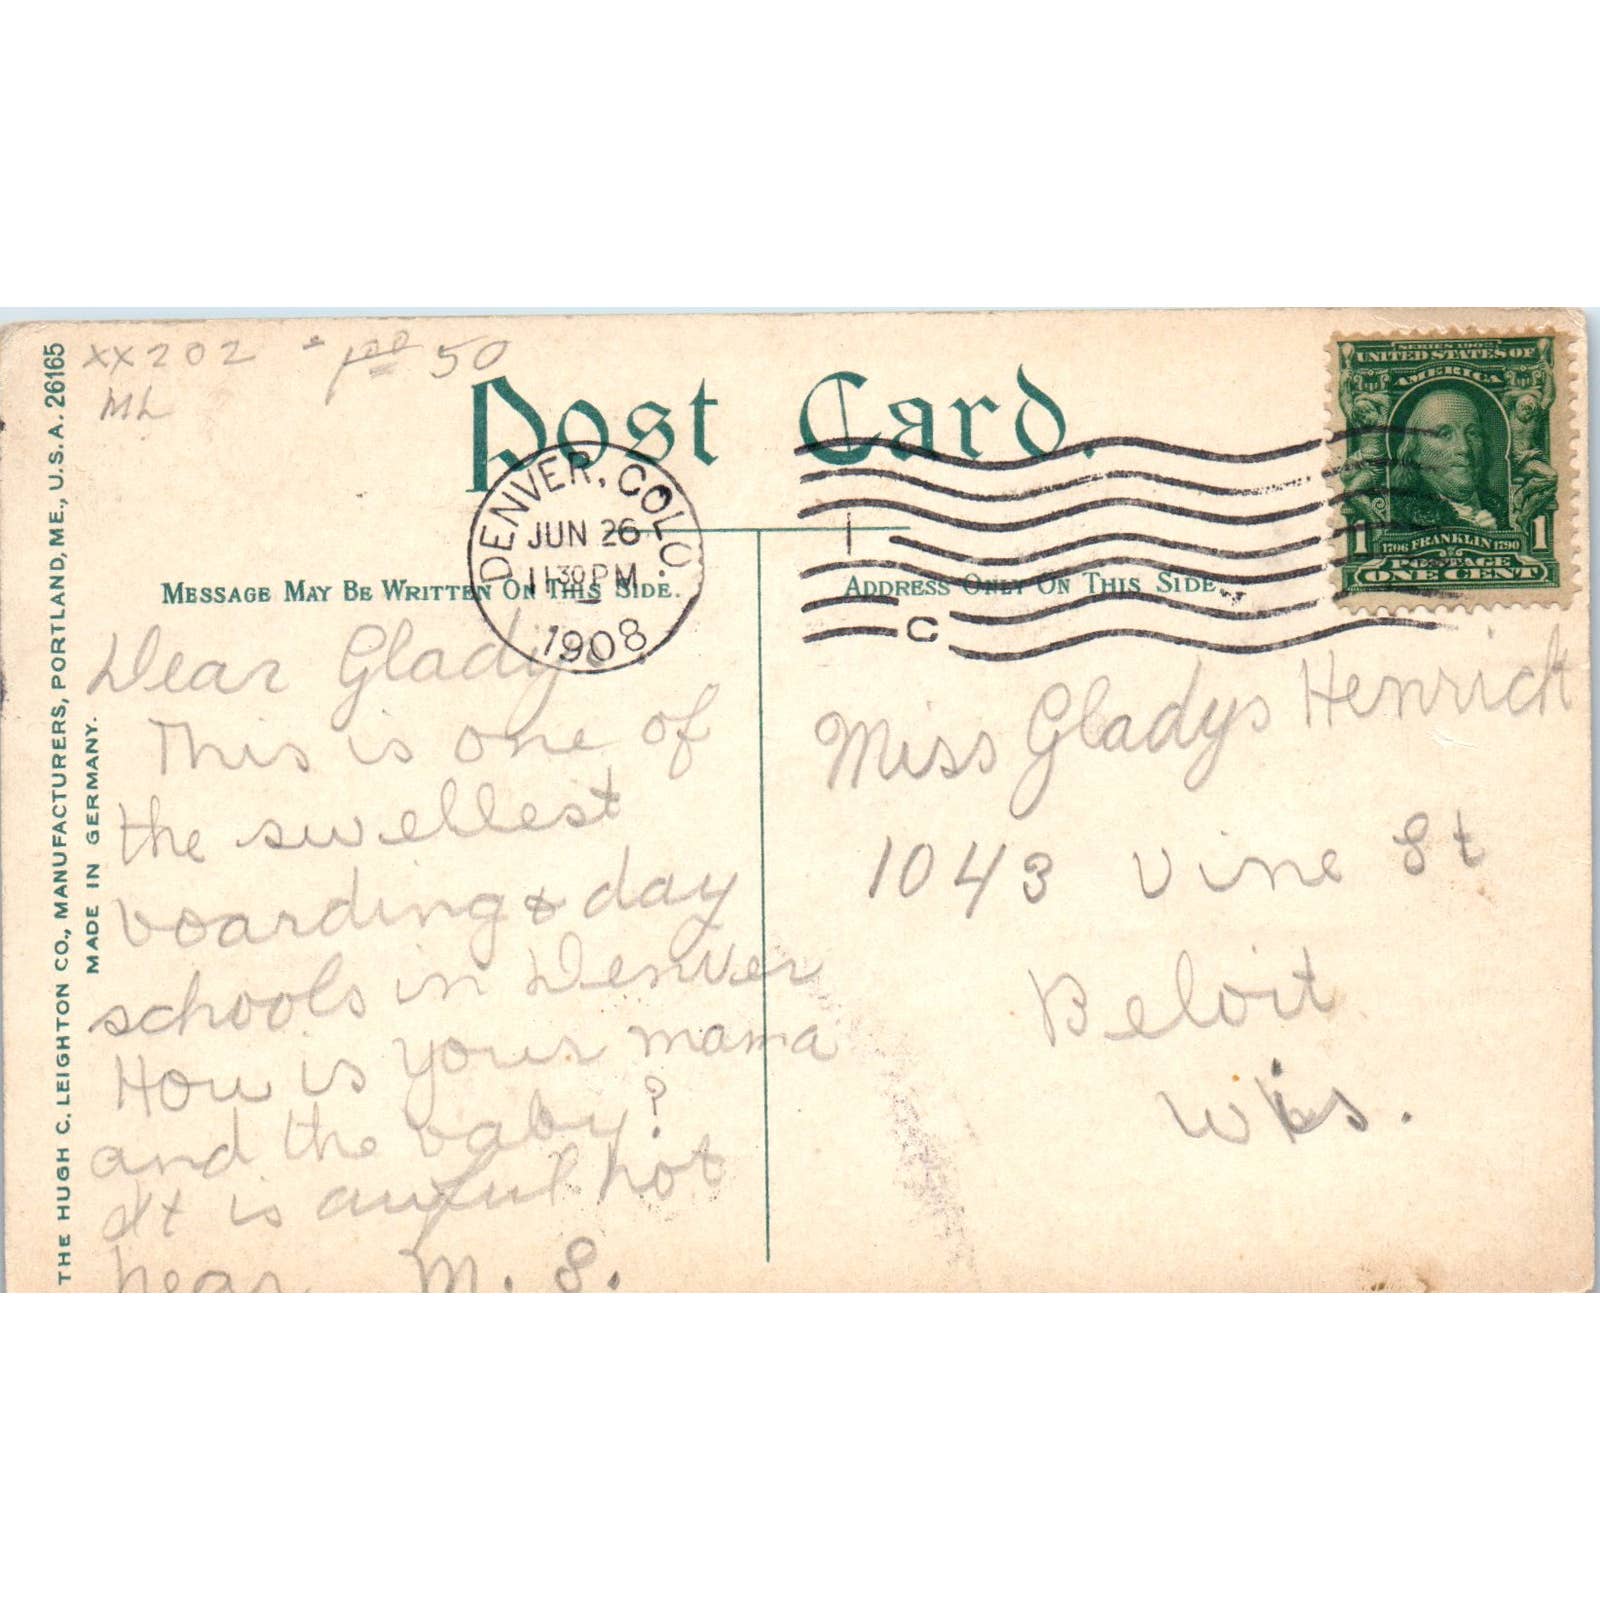 xx202 - 1.00 50
ML
Post Card.
THE HUGH C. LEIGHTON CO., MANUFACTURERS, PORTLAND, ME., U.S.A. 26165
MADE IN GERMANY.
DENVER, COLO.
JUN 26
11 30 PM
1908
1
C
SERIES 1902
UNITED STATES OF
AMERICA
1 1706 FRANKLIN 1790 1
POSTAGE
ONE CENT
MESSAGE MAY BE WRITTEN ON THIS SIDE.
Dear Gladys
This is one of
the swellest
boarding & day
schools in Denver
How is your mama
and the baby?
It is awful hot
hear M. S.
ADDRESS ONLY ON THIS SIDE.
Miss Gladys Henrich
1043 Vine St
Beloit
Wis.